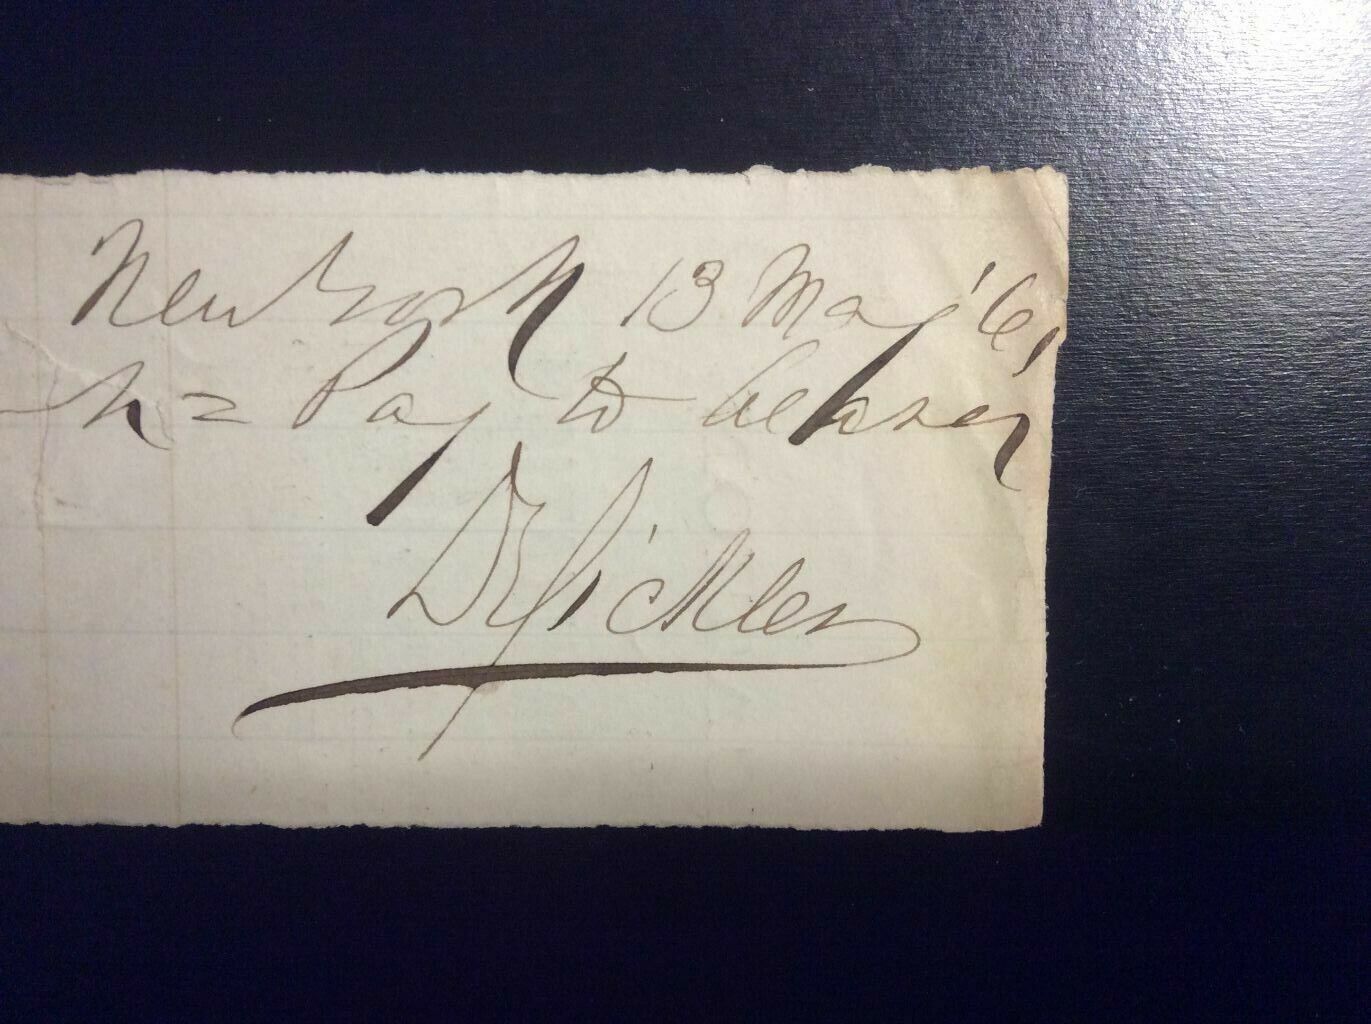 New York 13 May '61
= Pay to bearer
D E Sickles